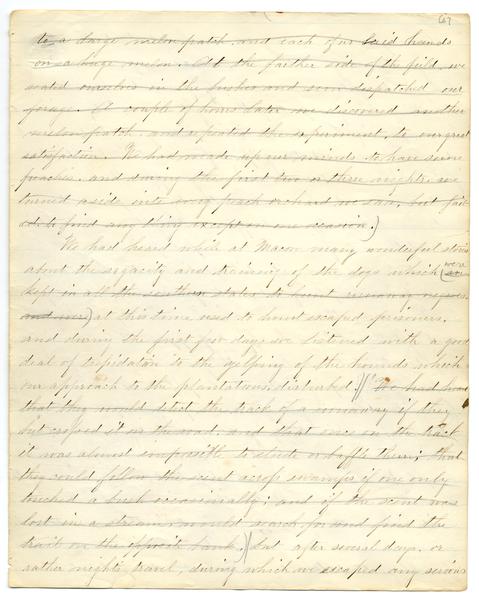 67
to a large melon patch and each of us laid hands
on a large melon. At the farther side of the field we
seated ourselves in the bushes and soon dispatched our
forage. A couple of hours later we discovered another
melon patch and repeated the experiment, to our great
satisfaction. We had made up our minds to have some
peaches, and during the first two or three nights, we
turned aside into every peach orchard we saw, but fail-
ed to find any thing except on one occasion.)
We had heard while at Macon many wonderful stories
about the sagacity and training of the dogs which (were
are
kept in all the southern states to hunt runaway negroes
and were) at this time used to hunt escaped prisoners,
and during the first few days we listened with a good
deal of trepidation to the yelping of the hounds which
our approach to the plantations disturbed. // We had heard
that they would detect the track of a runaway if they
but crossed it on the road, and that once on the track
it was almost impossible to elude or baffle them; that
they could follow the scent across swamps if one only
touched a bush occasionally; and if the scent was
lost in a stream would search for and find the
trail on the opposite bank. // but after several days, or
rather nights, travel, during which we escaped any serious